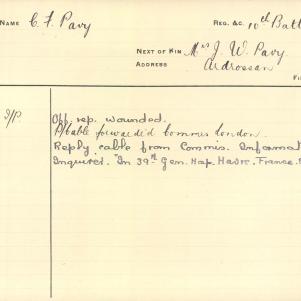 NAME C. F. Pavy REG. &C. 10th Batt
NEXT OF KIN Mrs J. W. Pavy
ADDRESS Ardrossan
S/P. Off. rep. wounded.
forwarded Commis London.
Reply cable from Commis. Informat
Inquired. "In 39th Gen. Hosp. Havre. France.